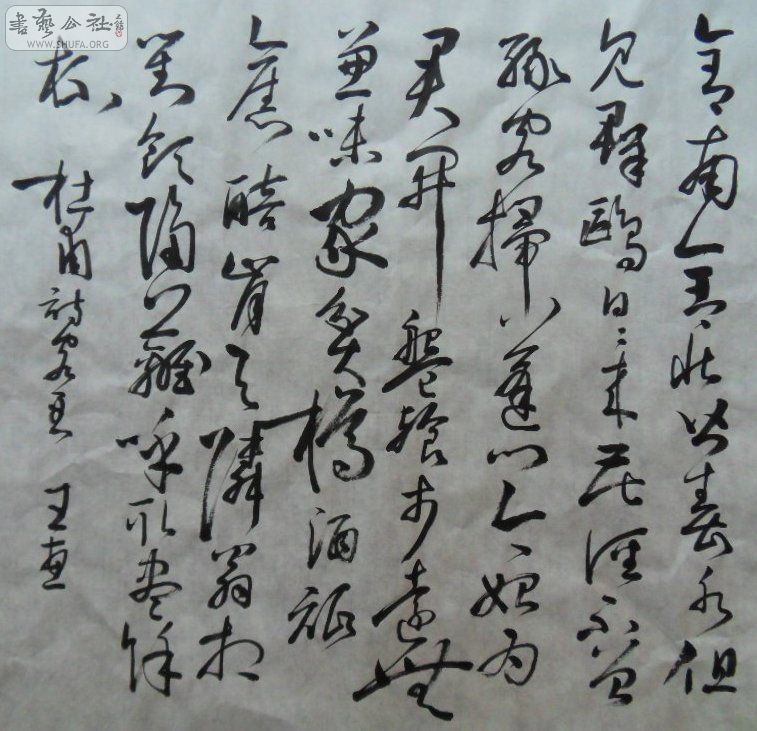 書藝公社
WWW.SHUFA.ORG
舍南舍北皆春水但
見群鷗日〻來花徑不曾
緣客掃蓬門今始為
君開盤飧市遠無
兼味家貧樽酒祗
舊醅肯與隣翁相
對飲隔籬呼取盡餘
杯 杜甫詩客至 王